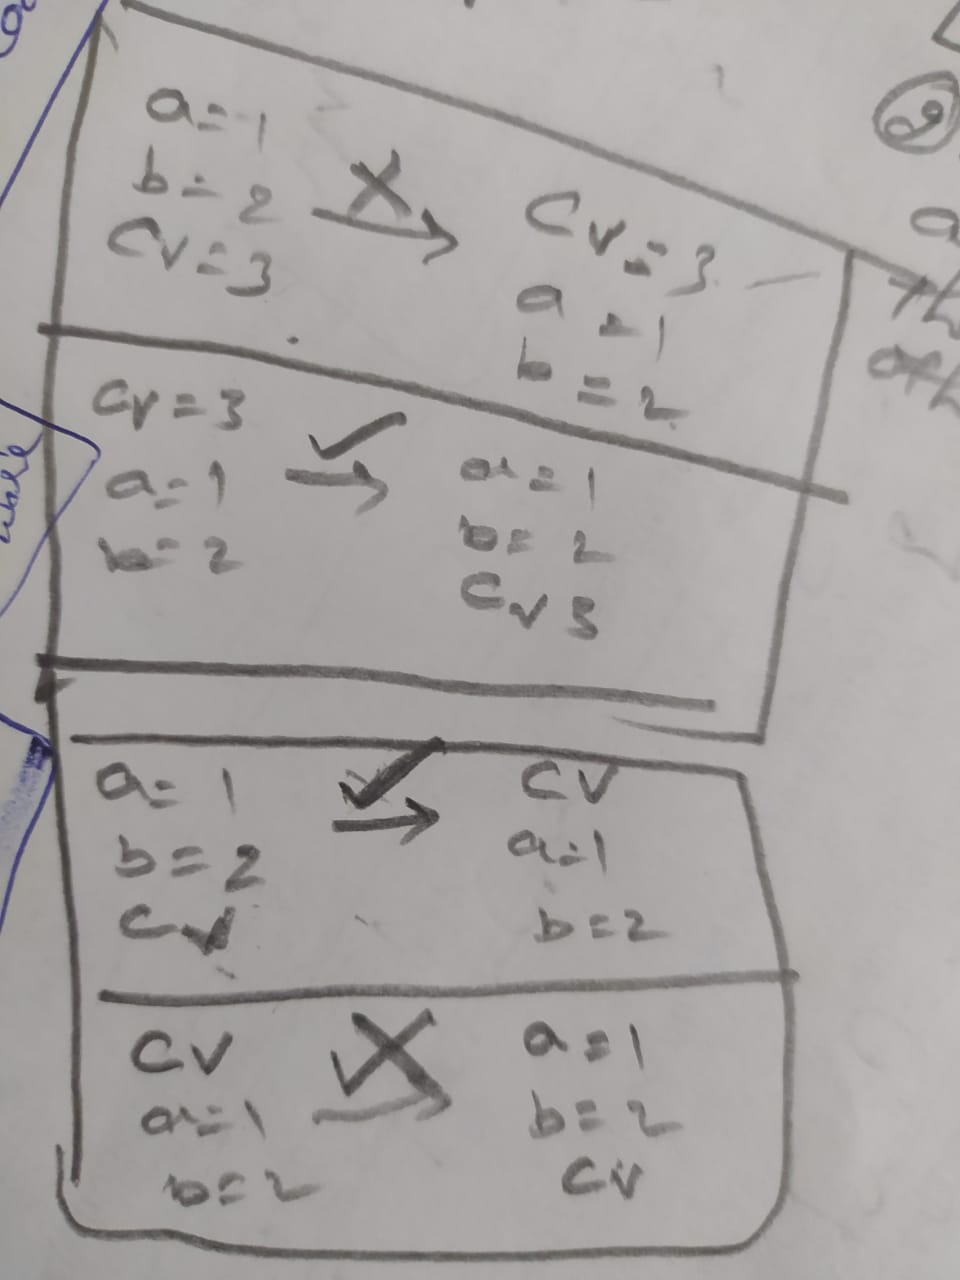 a=1
b=2
CV=3
X
→
CV=3
a=1
b=2
CV=3
a=1
b=2
✓
→
a=1
b=2
CV 3
a=1
b=2
CV
✓
→
CV
a=1
b=2
CV
a=1
b=2
X
→
a=1
b=2
CV
2
a